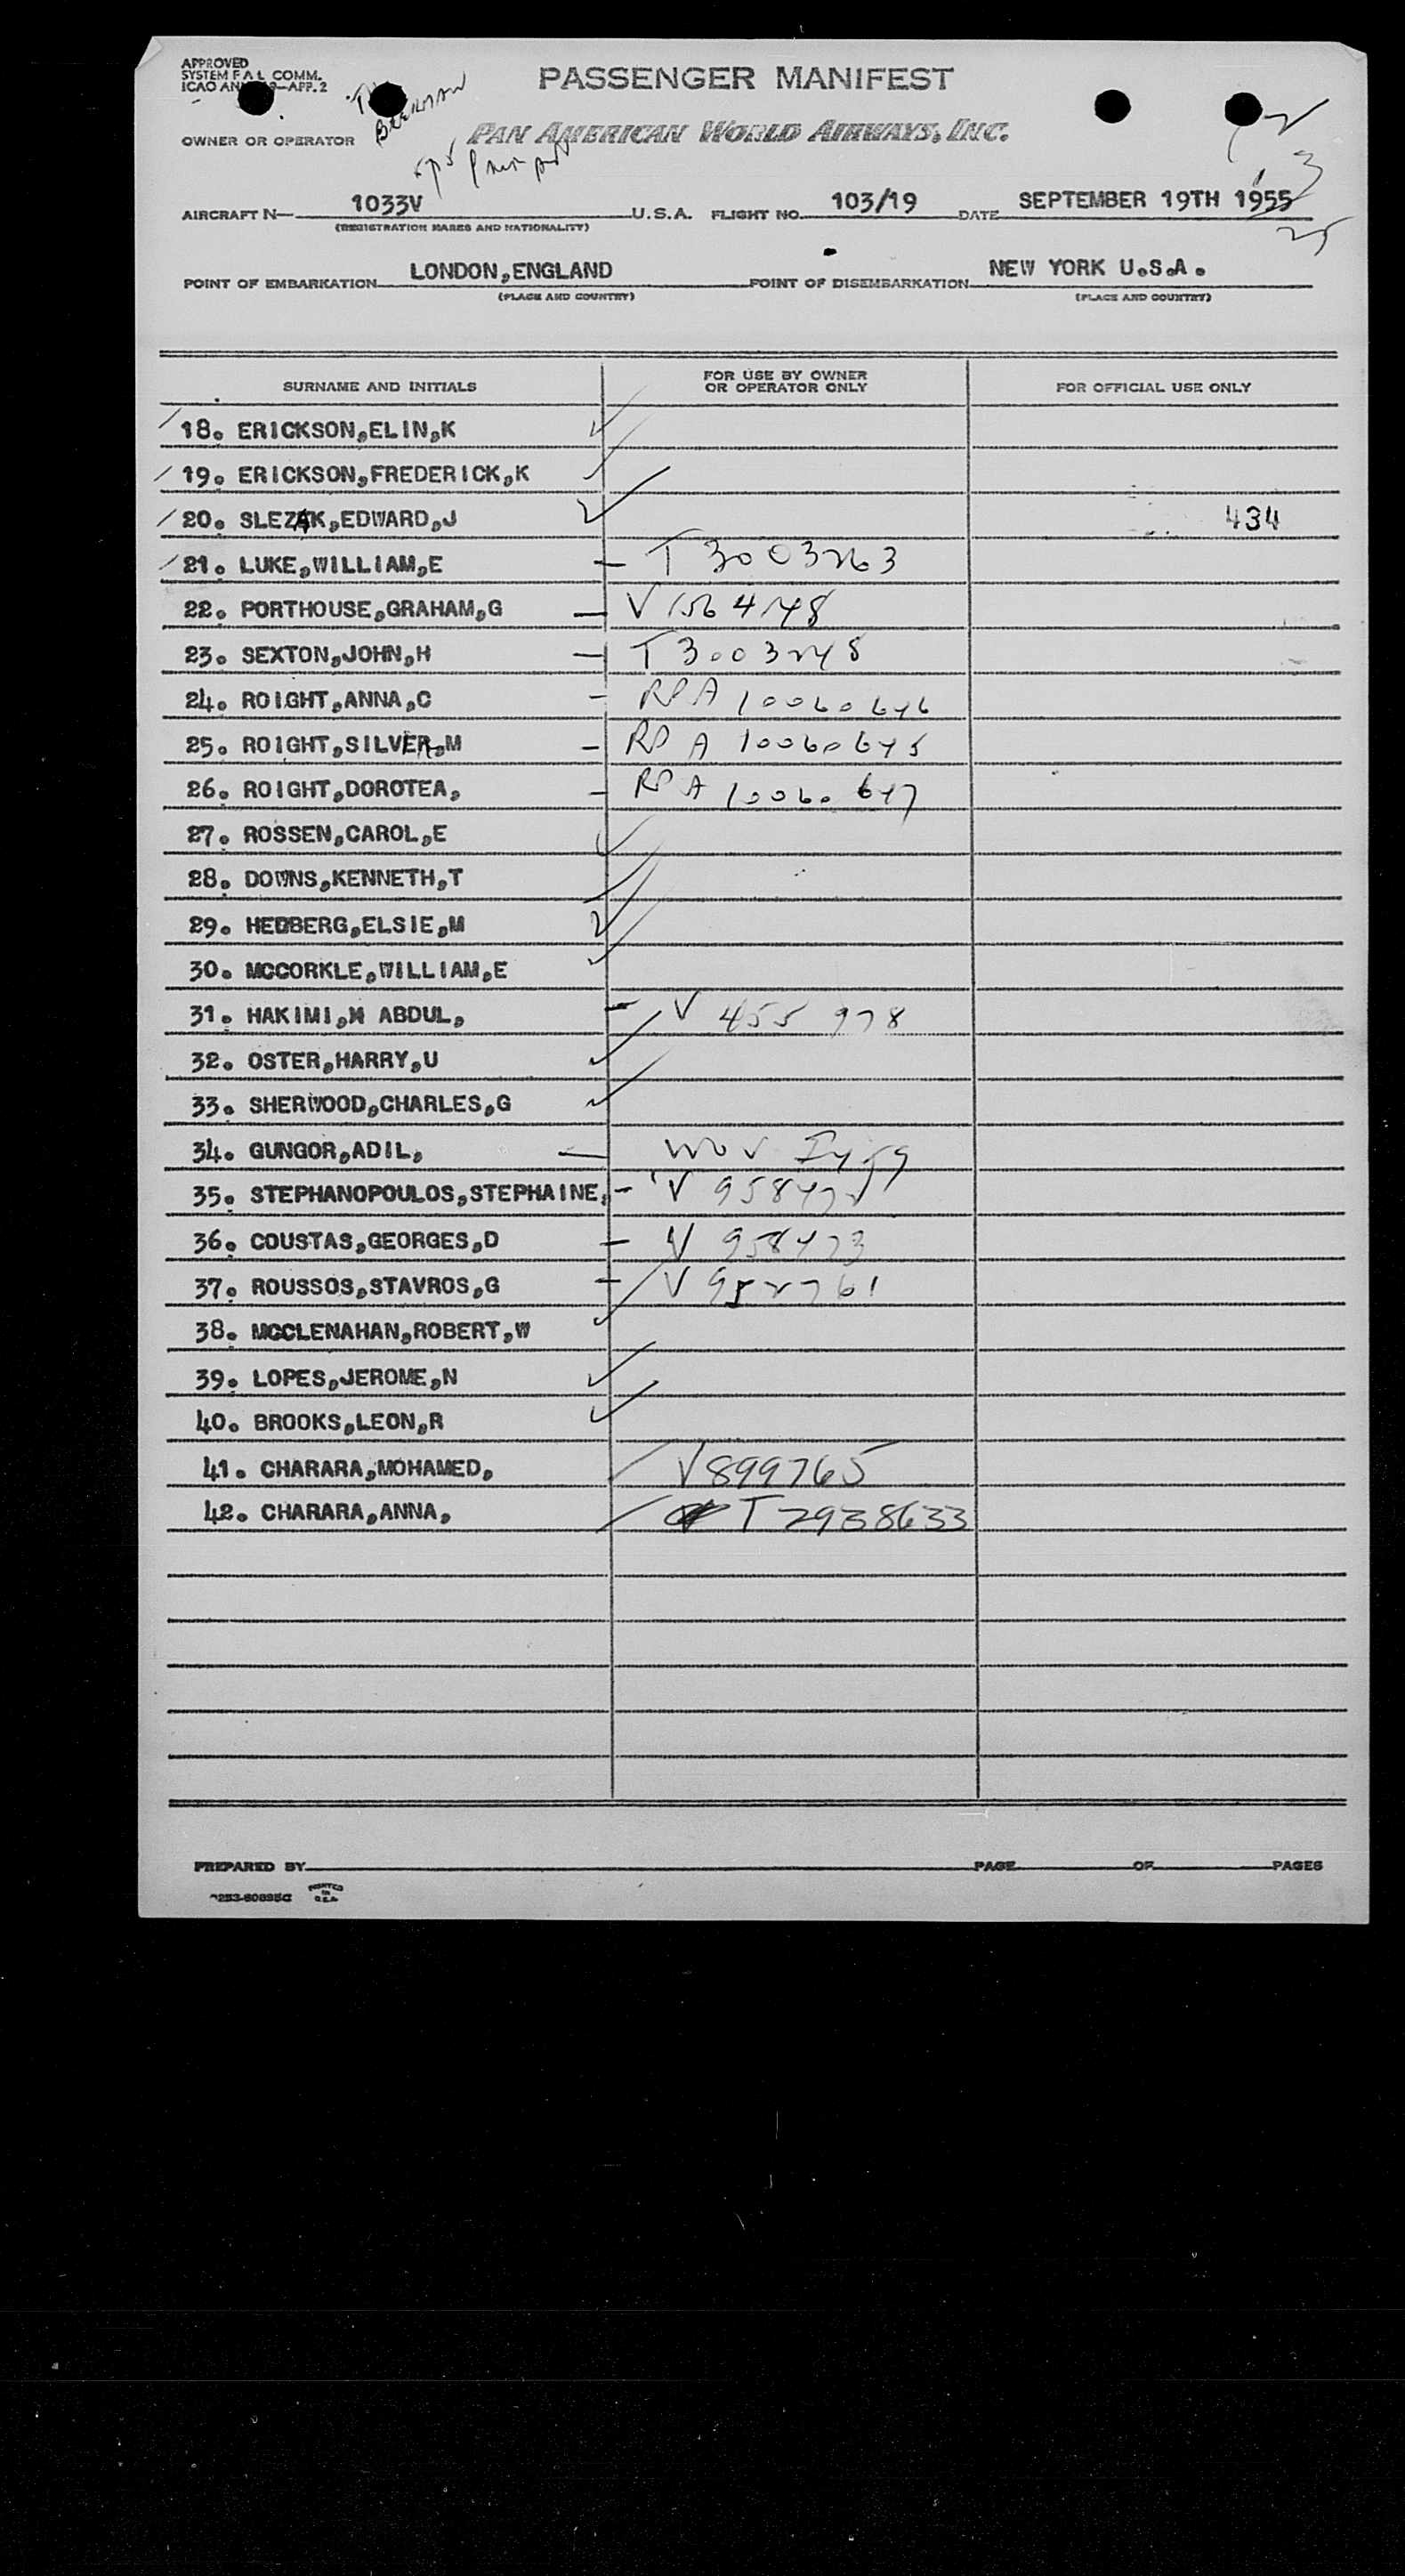 APPROVED
SYSTEM F A L COMM.
ICAO 9—APP. 2
PASSENGER MANIFEST
BEEKMAN
OWNER OR OPERATOR PAN AMERICAN WORLD AIRWAYS, INC.
AIRCRAFT N— 1033V U.S.A. FLIGHT NO. 103/19 DATE SEPTEMBER 19TH 1955
(REGISTRATION MARKS AND NATIONALITY)
25
POINT OF EMBARKATION LONDON,ENGLAND POINT OF DISEMBARKATION NEW YORK U.S.A.
(PLACE AND COUNTRY) (PLACE AND COUNTRY)
SURNAME AND INITIALS FOR USE BY OWNER OR OPERATOR ONLY FOR OFFICIAL USE ONLY
18. ERICKSON,ELIN,K
19. ERICKSON,FREDERICK,K
20. SLEZAK,EDWARD,J 434
21. LUKE,WILLIAM,E T 3003263
22. PORTHOUSE,GRAHAM,G V 1564148
23. SEXTON,JOHN,H T 3003248
24. ROIGHT,ANNA,C RP A 10060646
25. ROIGHT,SILVER,M RP A 10060645
26. ROIGHT,DOROTEA, RP A 10060647
27. ROSSEN,CAROL,E
28. DOWNS,KENNETH,T
29. HEDBERG,ELSIE,M
30. MCCORKLE,WILLIAM,E
31. HAKIMI,M ABDUL, V 455 978
32. OSTER,HARRY,U
33. SHERWOOD,CHARLES,G
34. GUNGOR,ADIL,
35. STEPHANOPOULOS,STEPHAINE, V 958472
36. COUSTAS,GEORGES,D V 958473
37. ROUSSOS,STAVROS,G V 952761
38. MCCLENAHAN,ROBERT,W
39. LOPES,JEROME,N
40. BROOKS,LEON,R
41. CHARARA,MOHAMED, V899765
42. CHARARA,ANNA, T 2938633
PREPARED BY PAGE OF PAGES
PRINTED IN U.S.A.